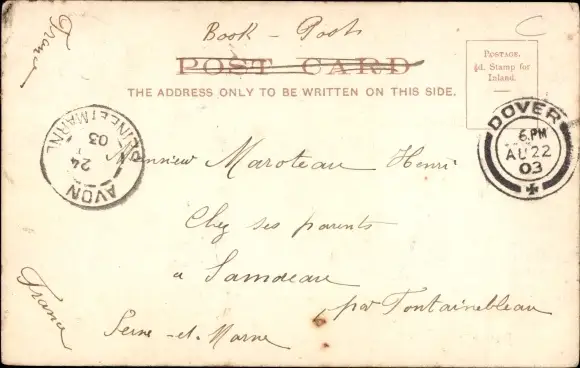 France
Book - Post
C
POST CARD
THE ADDRESS ONLY TO BE WRITTEN ON THIS SIDE.
POSTAGE.
½d. Stamp for
Inland.
DOVER
6. PM
AU 22
03
AVON
24
03
SEINE ET MARNE
Monsieur Maroteau Henri
Chez ses parents
a Samoreau
par Fontainebleau
Seine-et-Marne
France